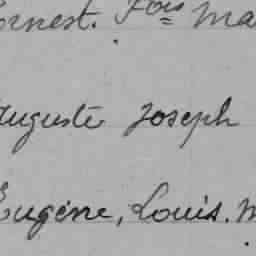 Ernest. Fois Ma
Auguste Joseph
Eugène, Louis. M